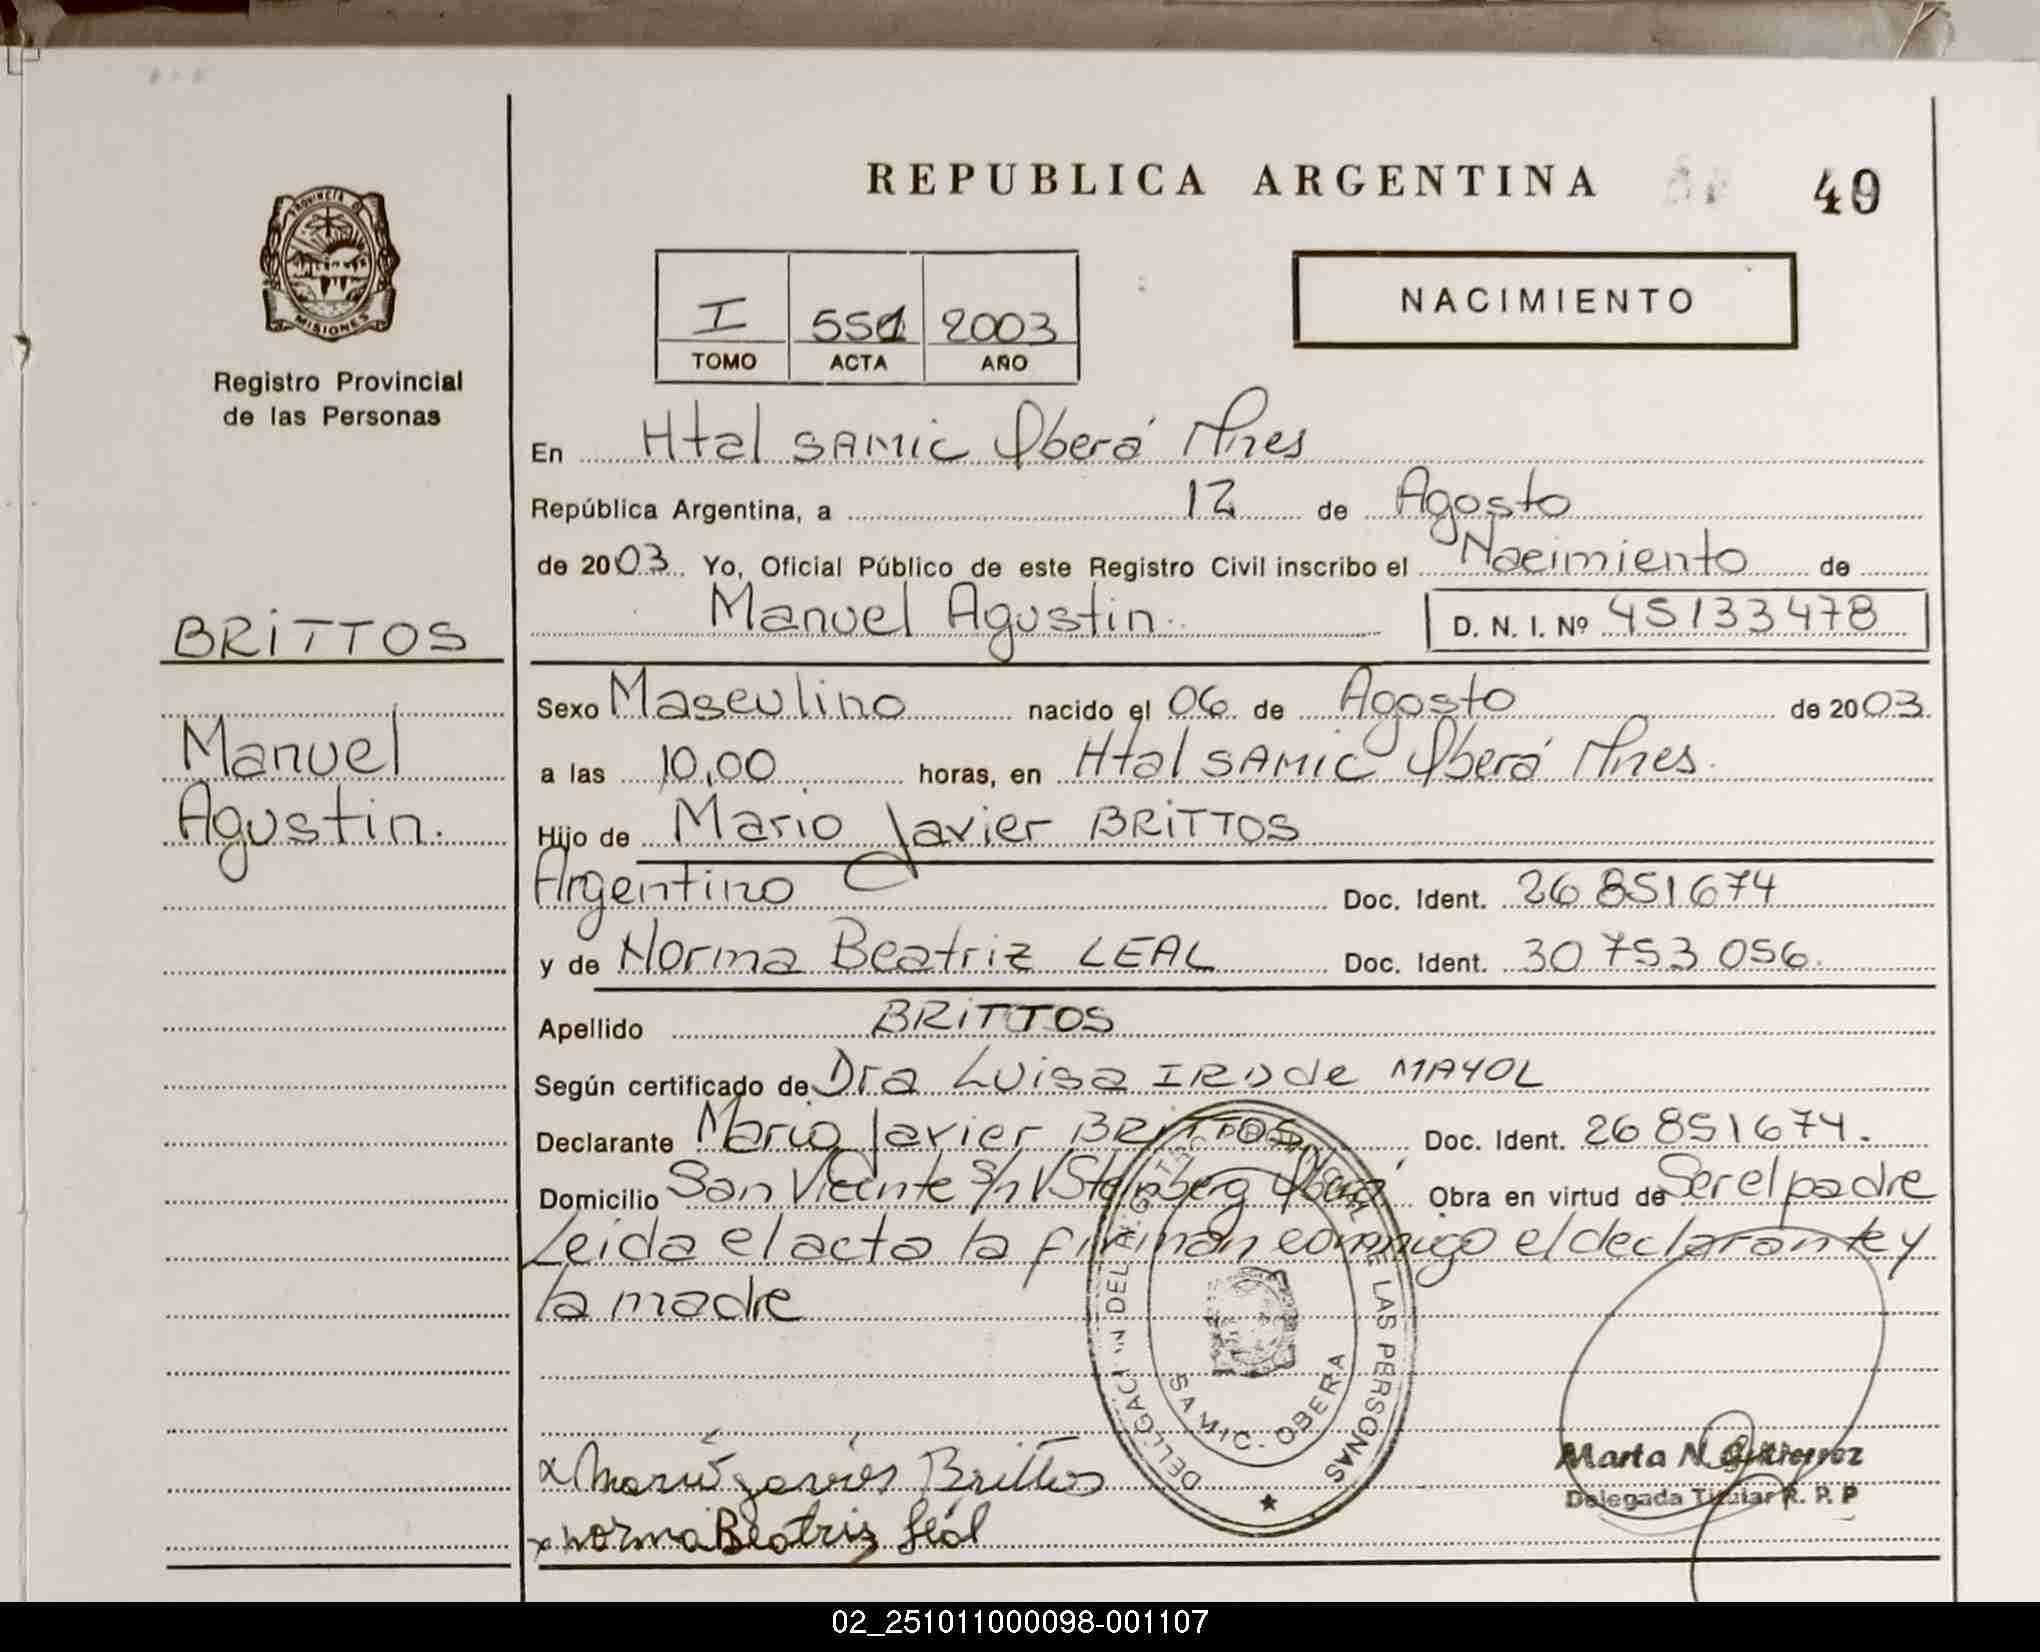 REPUBLICA ARGENTINA
49
PROVINCIA D
MISIONES
Registro Provincial
de las Personas
I 551 2003
TOMO ACTA AÑO
NACIMIENTO
En Htal SAMIC Oberá Mnes
República Argentina, a 12 de Agosto
de 2003 Yo, Oficial Público de este Registro Civil inscribo el Nacimiento de
Manuel Agustin. D. N. I. Nº 45133478
BRITTOS
Manuel
Agustin.
Sexo Masculino nacido el 06 de Agosto de 2003
a las 10,00 horas, en Htal SAMIC Oberá Mnes.
Hijo de Mario Javier BRITTOS
Argentino Doc. Ident. 26 851674
y de Norma Beatriz LEAL Doc. Ident. 30 753 056.
Apellido BRITTOS
Según certificado de Dra Luisa de MAYOL
Declarante Mario Javier BRITTOS Doc. Ident. 26 851674.
Domicilio San Vicente S/n V Stelnberg Oberá Obra en virtud de Ser el padre
Leida el acta la firman conmigo el declarante y
la madre
DE LAS PERSONAS
SAMIC - OBERA
x Mario Javier Brittos
x Norma Beatriz Leal
Marta N. Gutierrez
Delegada Titular R. P. P
02_251011000098-001107